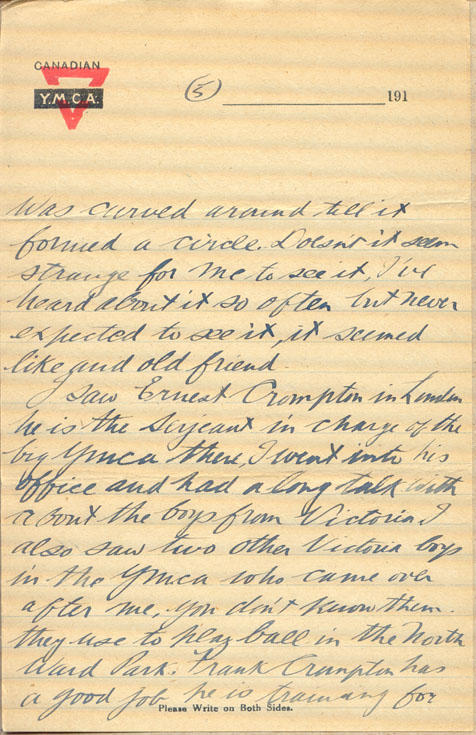 CANADIAN
Y.M.C.A.
(5) 191
was curved around till it
formed a circle. Doesn't it seem
strange for me to see it, I've
heard about it so often but never
expected to see it, it seemed
like and old friend
Saw Ernest Crompton in London
he is the Serjeant in charge of the
big Ymca there, I went into his
office and had a long talk with
about the boys from Victoria I
also saw two other Victoria boys
in the Ymca who came over
after me, you don't know them.
they use to play ball in the North
Ward Park. Frank Crompton has
a good job he is training for
Please Write on Both Sides.